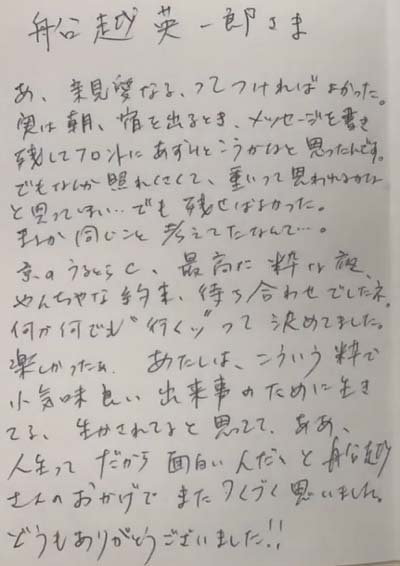 船越英一郎さま
あ、親愛なる、ってつければよかった。
実は朝、宿を出るとき、メッセージを書き
残してフロントにあずけとこうかなと思ったんです。
でもなんか照れくさくて、重いって思われるかな
と思ってしまい…でも残せばよかった。
まさか同じこと考えてたなんて…。
京のうるとらC、最高に粋な夜、
やんちゃな約束、待ち合わせでしたネ。
何が何でも“行くッ”って決めてました。
楽しかったぁ. あたしは、こういう粋で
小気味良い出来事のために生き
てる、生かされてると思ってて、ああ、
人生ってだから面白いんだ、と船越
さんのおかげでまたつくづく思いました。
どうもありがとうございました!!